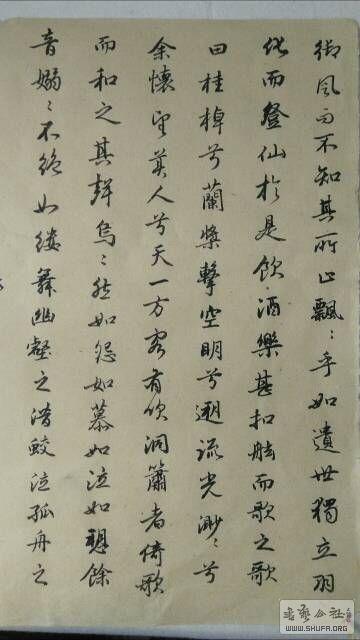 御風而不知其所止飄〻乎如遺世獨立羽
化而登仙於是飲酒樂甚扣舷而歌之歌
曰桂棹兮蘭槳擊空明兮遡流光渺〻兮
余懷望美人兮天一方客有吹洞簫者倚歌
而和之其聲烏〻然如怨如慕如泣如愬餘
音嫋〻不絕如縷舞幽壑之潛蛟泣孤舟之
書藝公社
WWW.SHUFA.ORG